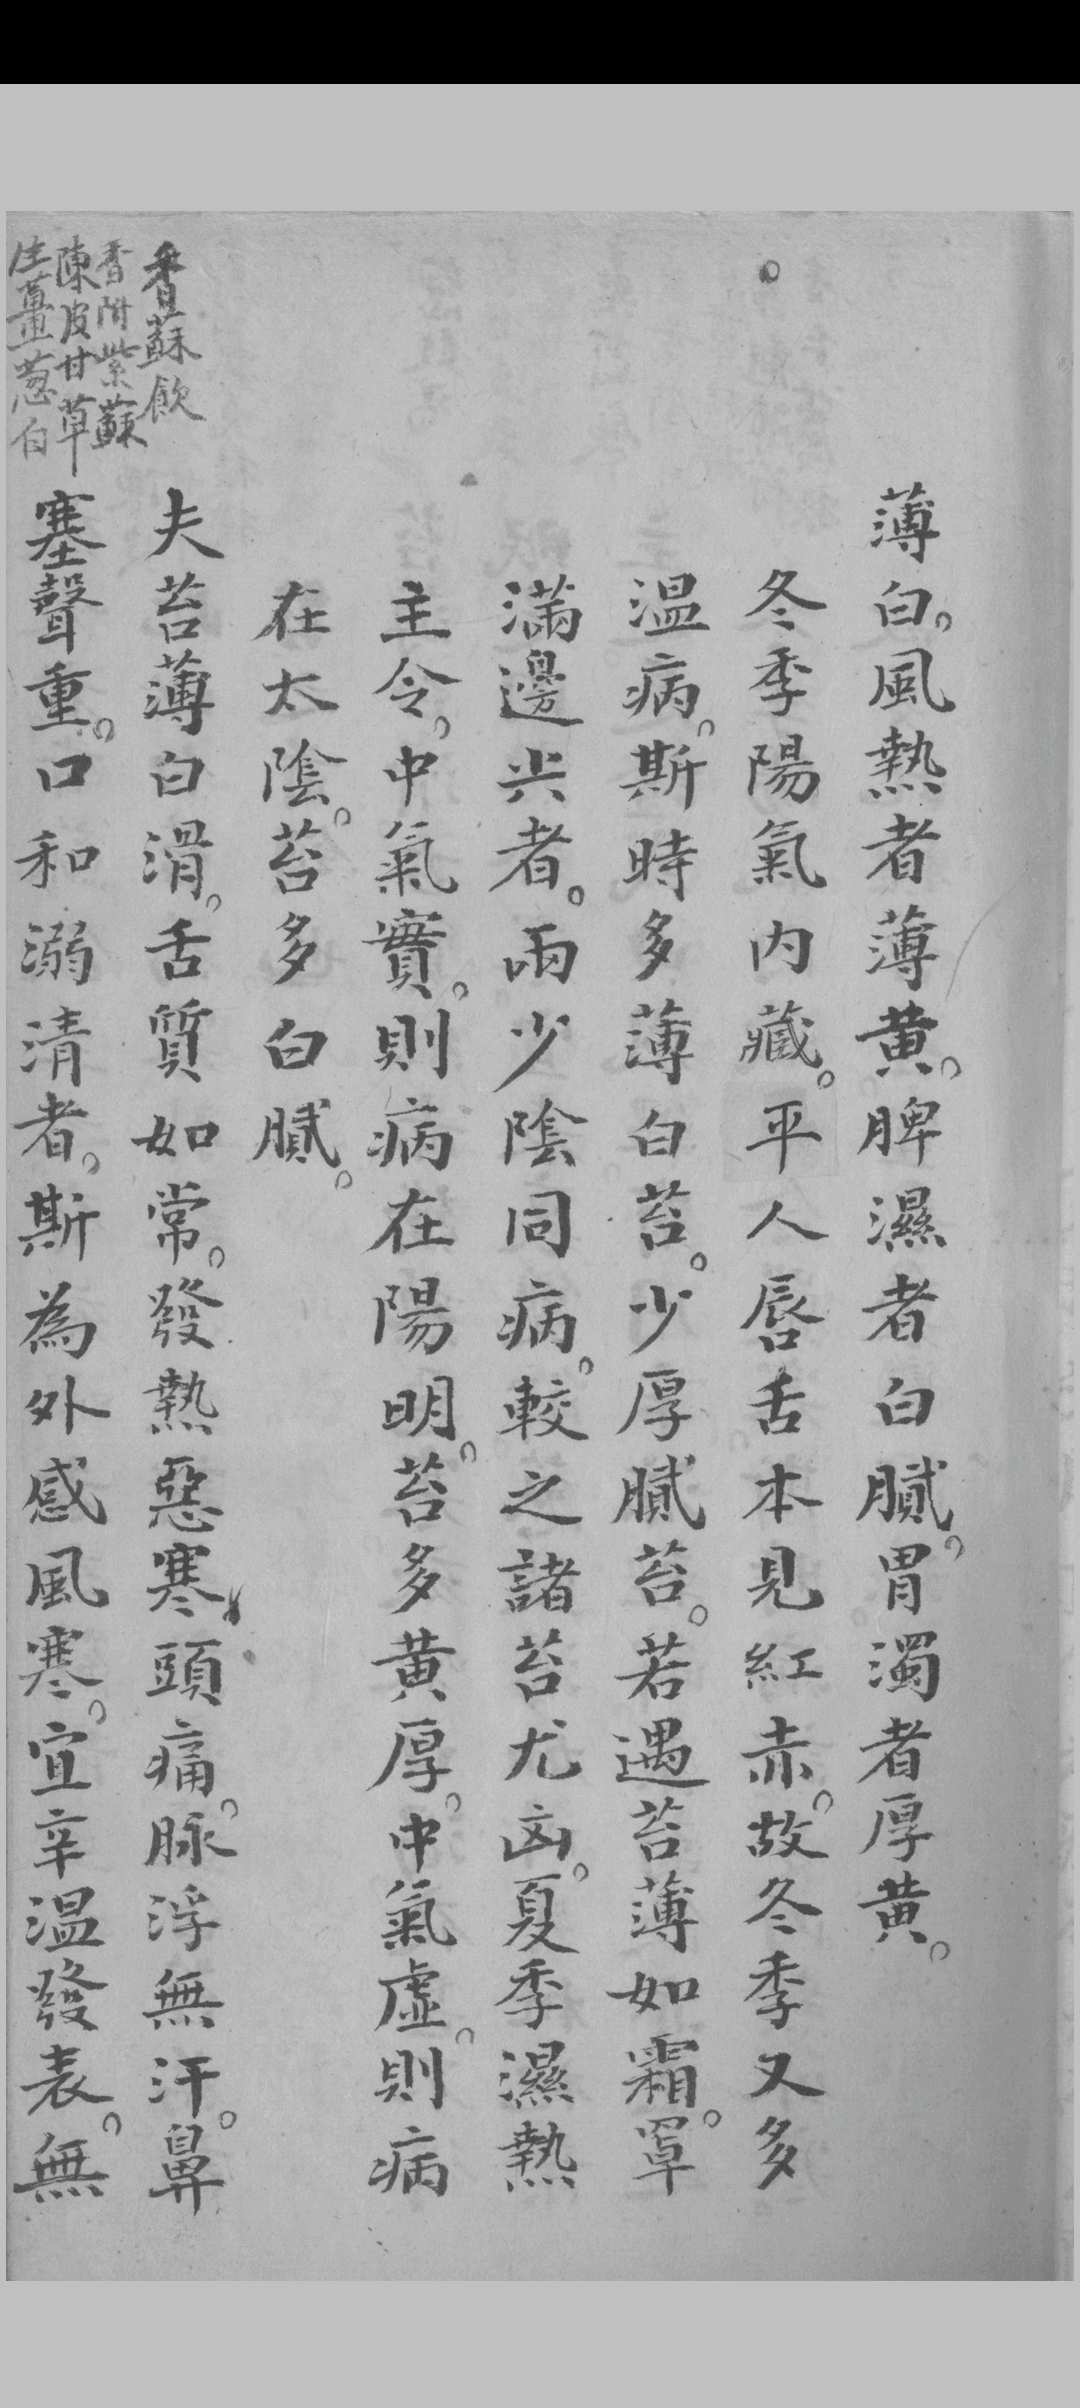 薄白。風熱者薄黄。脾濕者白膩。胃濁者厚黄。
冬季陽氣内藏。平人唇舌本見紅赤。故冬季又多
温病。斯時多薄白苔。少厚膩苔。若遇苔薄如霜。罩
滿邊尖者。兩少陰同病。較之諸苔尤凶。夏季濕熱
主令。中氣實。則病在陽明。苔多黄厚。中氣虛。則病
在太陰。苔多白膩。
夫苔薄白滑。舌質如常。發熱惡寒、頭痛。脉浮無汗。鼻
塞聲重。口和溺清者。斯為外感風寒。宜辛温發表。無
香蘇飲
香附紫蘇
陳皮甘草
生薑葱白